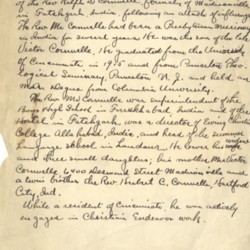 of the Rev. Ralph D. Cornuelle, formerly of Madisonville
in Fatehgarh, India, following an attack of influenza.
The Rev. Mr. Cornuelle had been a Presbyterian missionary
in India for several years. He was the son of the late
Victor Cornuelle. He graduated from the University
of Cincinnati in 1915 and from Princeton Theo-
logical Seminary, Princeton N. J. and held an
M.A. degree from Columbia University.
The Rev. Mr. Cornuelle was superintendent of the
Boys High School in Farrukhabad India and of the
Hostel in Fatehgarh, was a director of Ewing Christian
College Allahabad, India, and head of the summer
language school in Landour. He leaves his wife
and two small daughters; his mother Mrs. Victor
Cornuelle 6400 Desmond Street Madisonville and
a twin brother the Rev. Herbert C. Cornuelle, Hartford
City, Ind.
While a resident of Cincinnati he was actively
engaged in Christian Endeavor work.